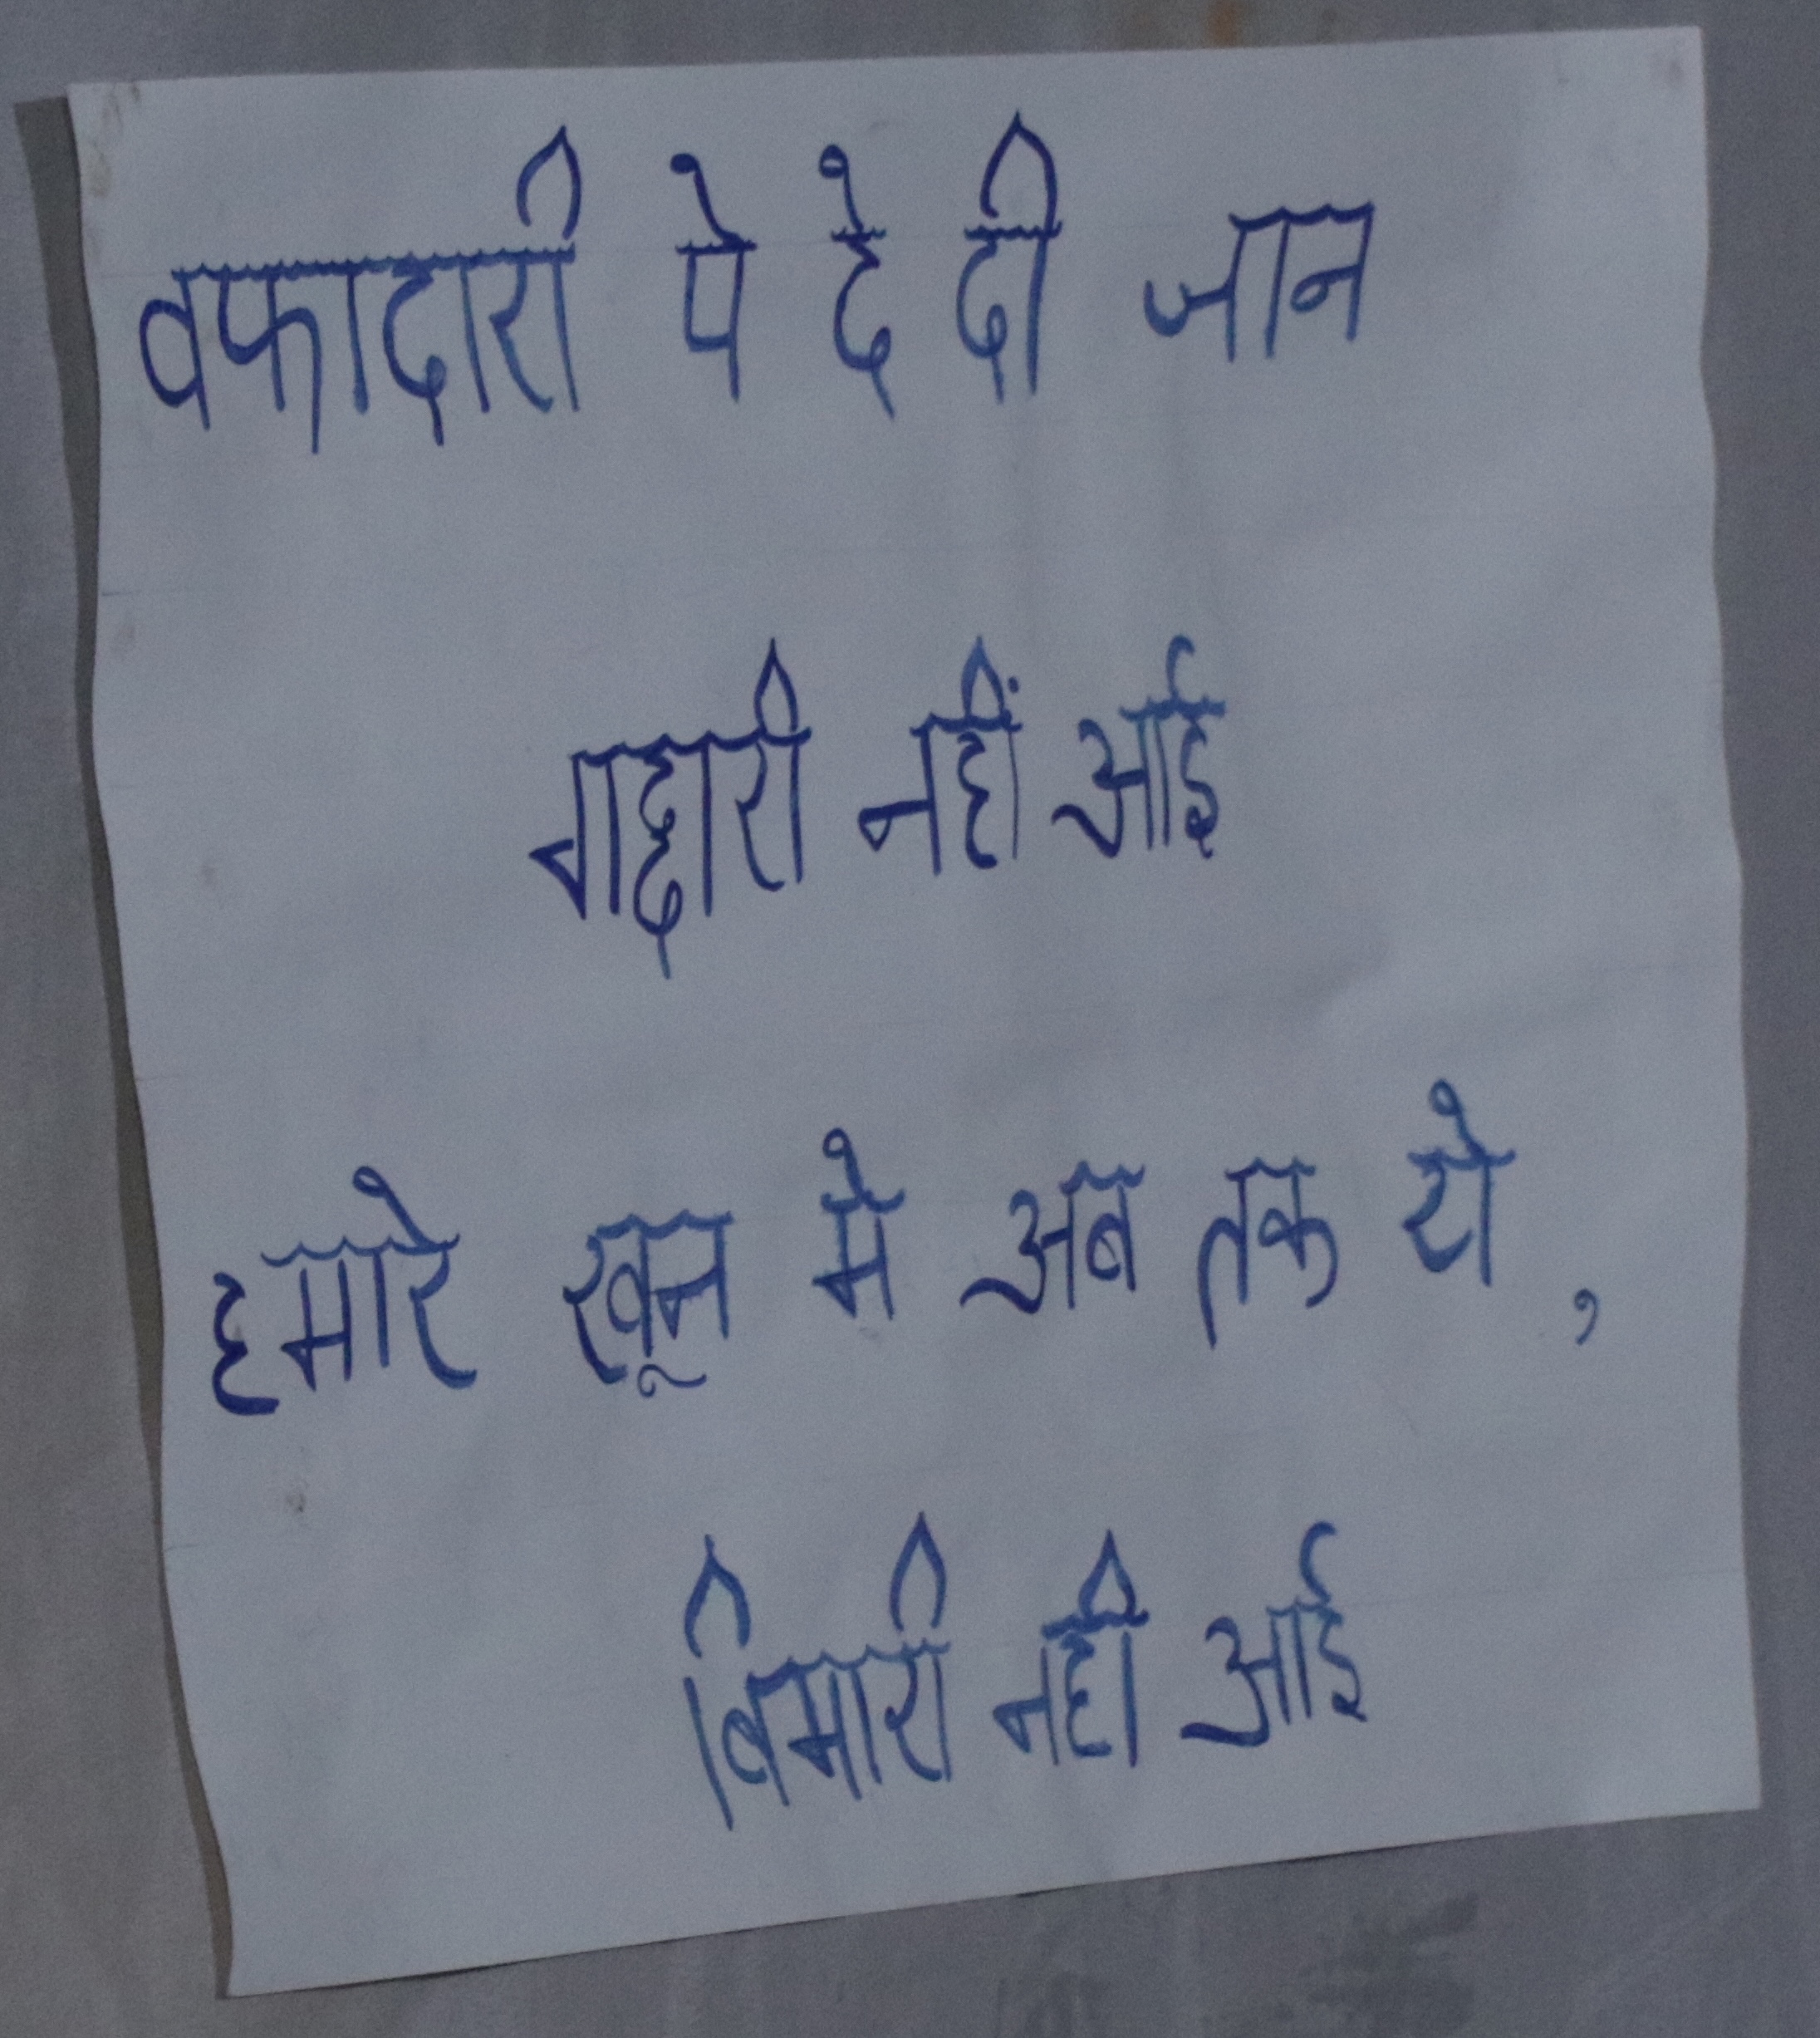 वफादारी पे दे दी जान
गद्दारी नहीं आई
हमारे खून मे अब तक ये,
बिमारी नही आई